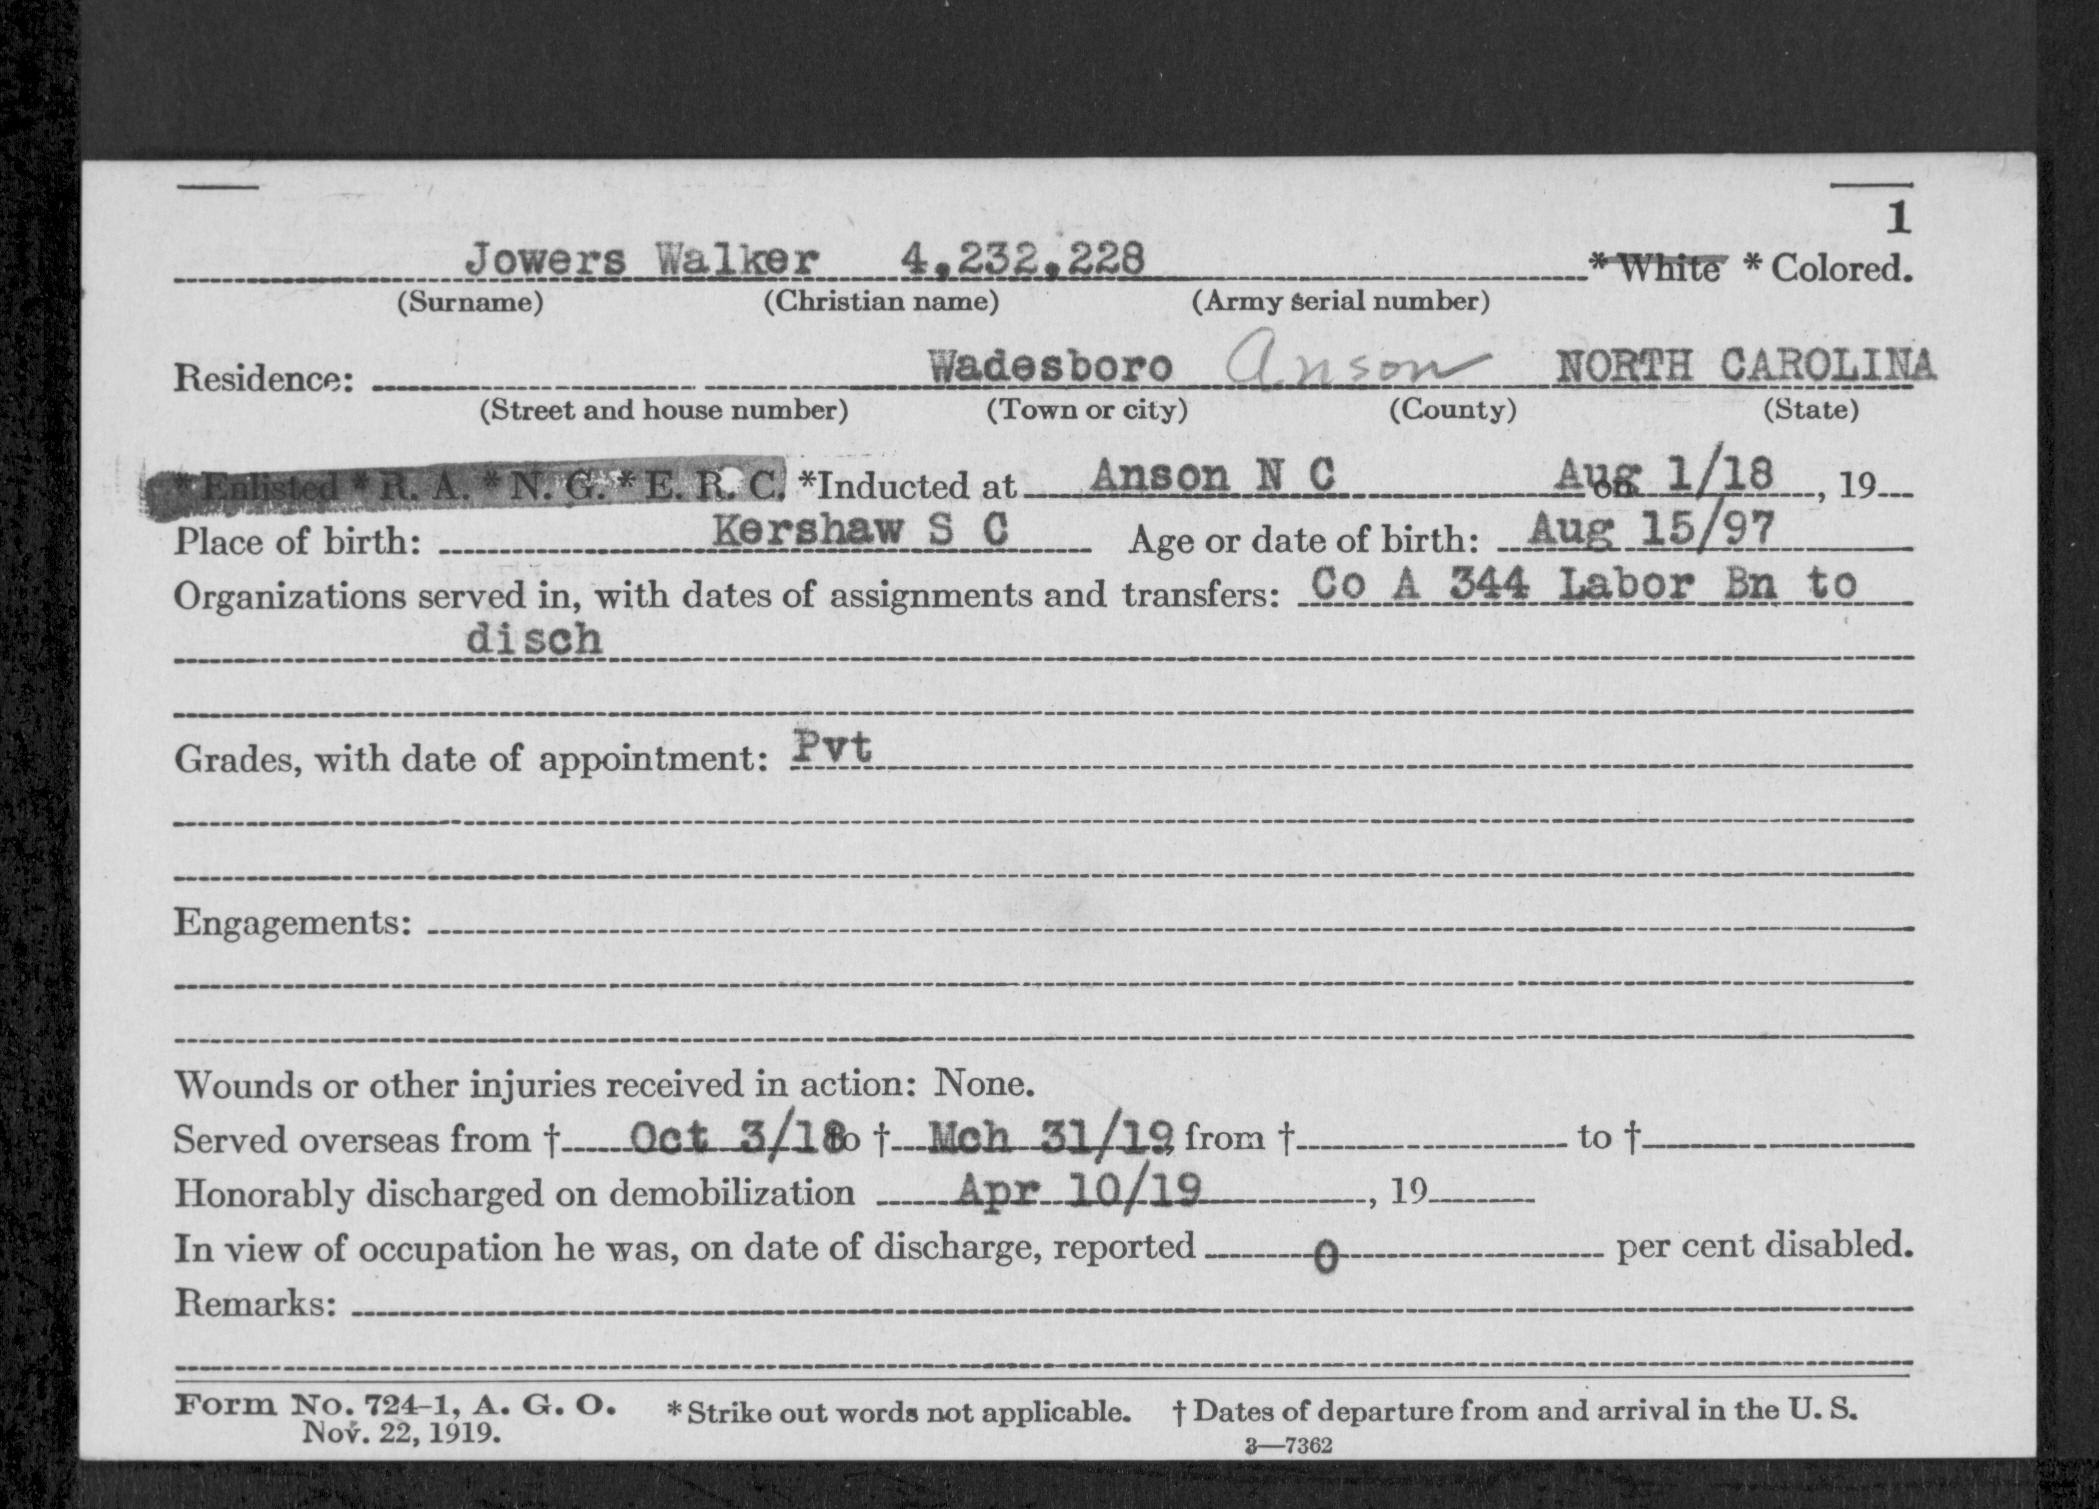 1
Jowers Walker 4,232,228 * White * Colored.
(Surname) (Christian name) (Army serial number)
Residence: Wadesboro Anson NORTH CAROLINA
(Street and house number) (Town or city) (County) (State)
* Enlisted * R. A. * N. G. * E. R. C. *Inducted at Anson N C on Aug 1/18, 19
Place of birth: Kershaw S C Age or date of birth: Aug 15/97
Organizations served in, with dates of assignments and transfers: Co A 344 Labor Bn to
disch
Grades, with date of appointment: Pvt
Engagements:
Wounds or other injuries received in action: None.
Served overseas from † Oct 3/18 to † Mch 31/19, from † to †
Honorably discharged on demobilization Apr 10/19, 19
In view of occupation he was, on date of discharge, reported 0 per cent disabled.
Remarks:
Form No. 724-1, A. G. O. * Strike out words not applicable. † Dates of departure from and arrival in the U. S.
Nov. 22, 1919.
3—7362